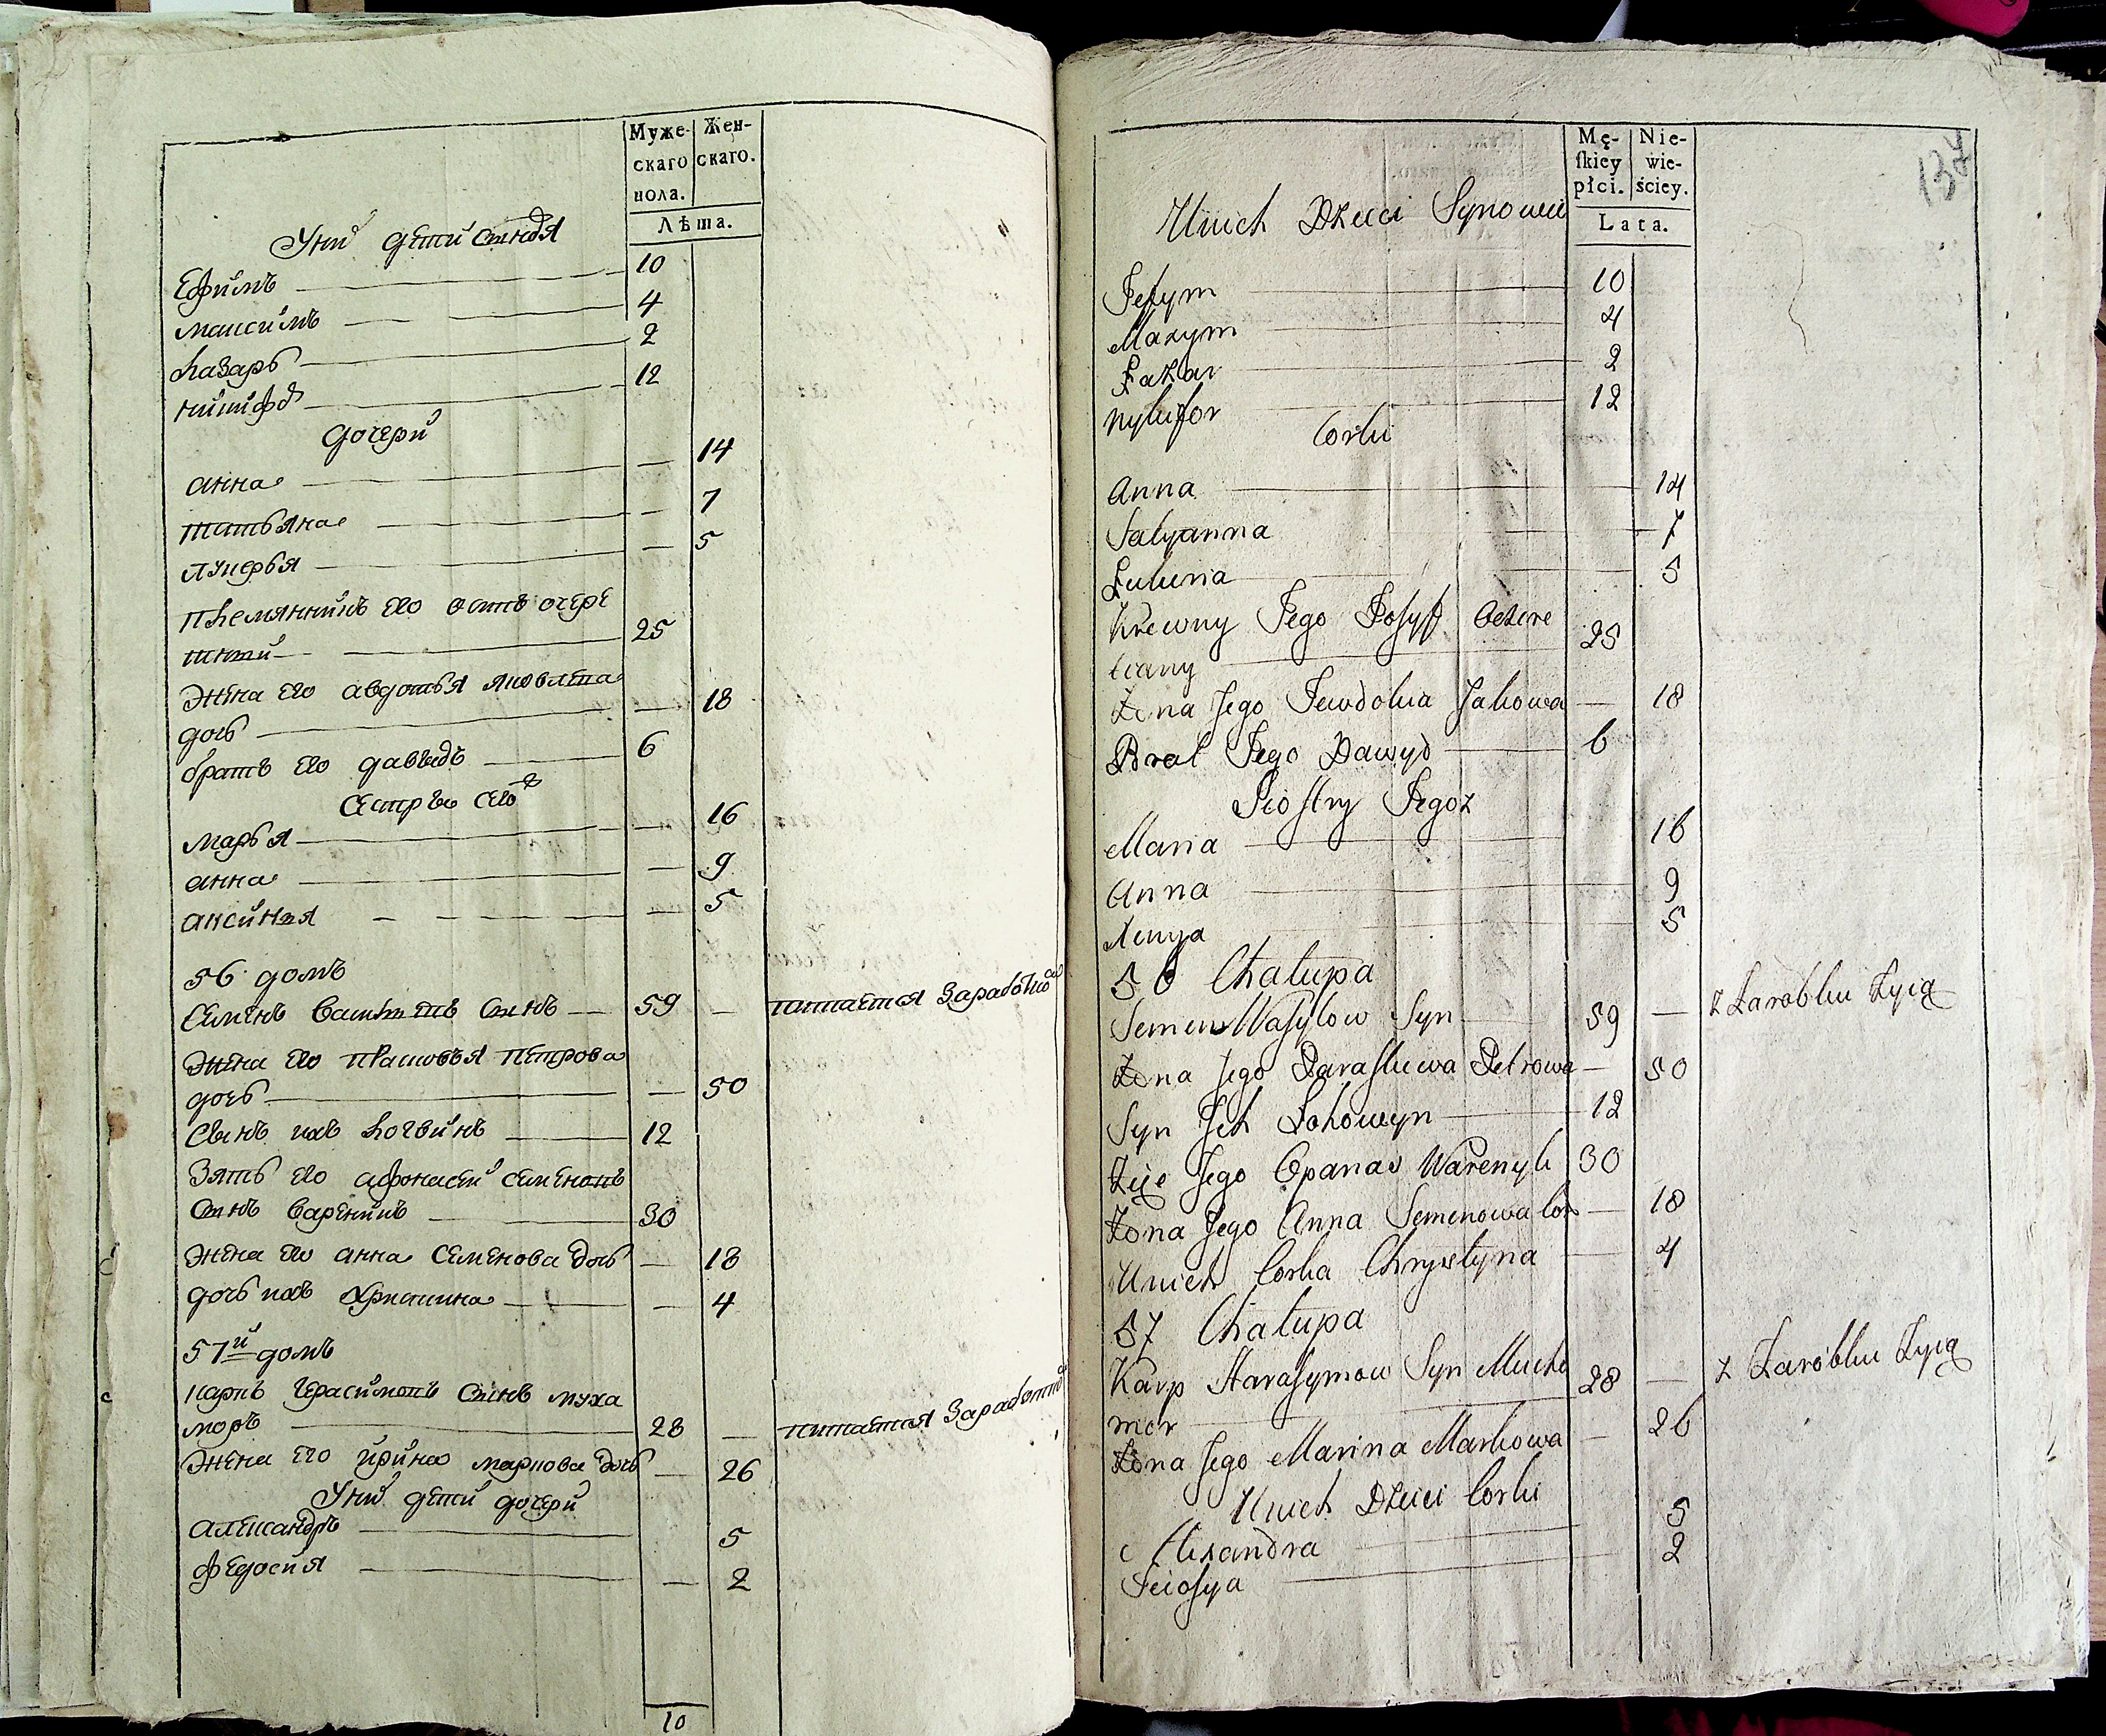 Муже-
скаго
пола.
Жен-
скаго.
Лѣта.
У них дѣти сыновя
Ефимъ 10
Максимъ 4
Лазарь 2
Никифоръ 12
дочери
анна 14
татьяна 7
лукерья 5
племянникъ его осипъ очере
тяный 25
жена его авдотья яковлева
дочь 18
братъ его давыдъ 6
Сестры его ж
марья 16
анна 9
аксиния 5
56 домъ
Семенъ василевъ сынъ 59 — питается заработкою
жена его прасковья петрова
дочь — 50
Сынъ ихъ логвинъ 12
Зять его афонасей семеновъ
сынъ вареникъ 30
жена его анна семенова дочь — 18
дочь ихъ христина — 4
57й домъ
карпъ герасимовъ сынъ муха
моръ 28 — питается заработкою
жена его ирина маркова дочь — 26
У них дѣти дочери
александра 5
федосия — 2
10
Mę-
ſkiey
płci.
Nie-
wie-
ściey.
Lata.
137
U nich Dzieci Synowie
Jefym 10
Maxym 4
Łazar 2
Nykifor 12
Corki
Anna 14
Tatyanna 7
Łukiria 5
Krewny Jego Josyf Oczere
tiany 25
Żona Jego Jewdokia Jakowa — 18
Brat Jego Dawyd 6
Siostry Jegoż
Maria 16
Anna 9
Xenya 5
56 Chałupa
Semen Wasylow Syn 59 — z Zarobku Żyią
Żona Jego Paraskiewa Petrowa — 50
Syn Ich Łohowyn 12
Zięć Jego Opanas Warenyk 30
Żona Jego Anna Semenowa Cor — 18
U nich Corka Chrystyna — 4
57 Chałupa
Karp Harasymow Syn Mucho
mor 28 — z Zarobku Żyią
Żona Jego Marina Markowa — 26
U nich Dzieci Corki
Alixandra 5
Feiosya 2